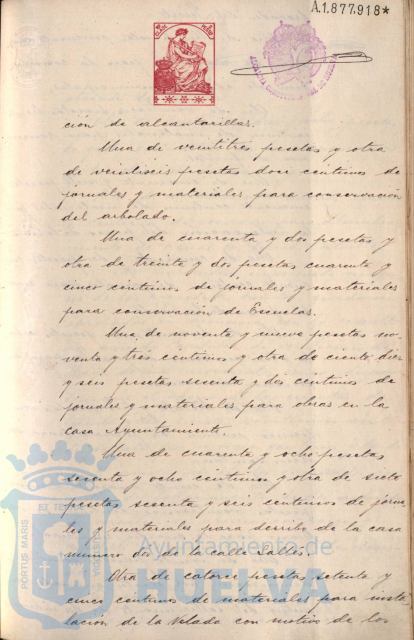 A.1.877,918*
ción de alcantarillas.
Una de veintitres pesetas y otra
de veintiseis pesetas doce centimos de
jornales y materiales para conservación
del arbolado.
Una de cuarenta y dos pesetas y
otra de treinta y dos pesetas cuarenta y
cinco centimos de jornales y materiales
para conservación de Escuelas.
Una de noventa y nueve pesetas no-
venta y tres centimos y otra de ciento diez
y seis pesetas sesenta y dos centimos de
jornales y materiales para obras en la
casa Ayuntamiento.
Una de cuarenta y ocho pesetas
sesenta y ocho centimos y otra de siete
pesetas sesenta y seis centimos de jorna-
les y materiales para derribo de la casa
numero dos de la calle
Otra de catorce pesetas setenta y
cinco centimos de materiales para insta
lación de la Velada con motivo de los
PORTUS MARIS
Ayuntamiento de
HUELVA